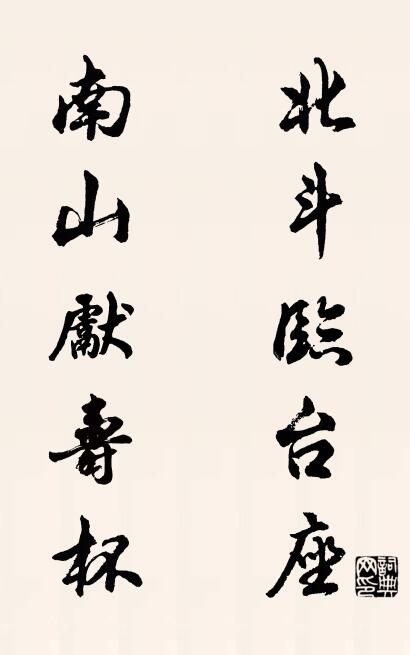 北斗臨台座
南山獻壽杯
詞典网印